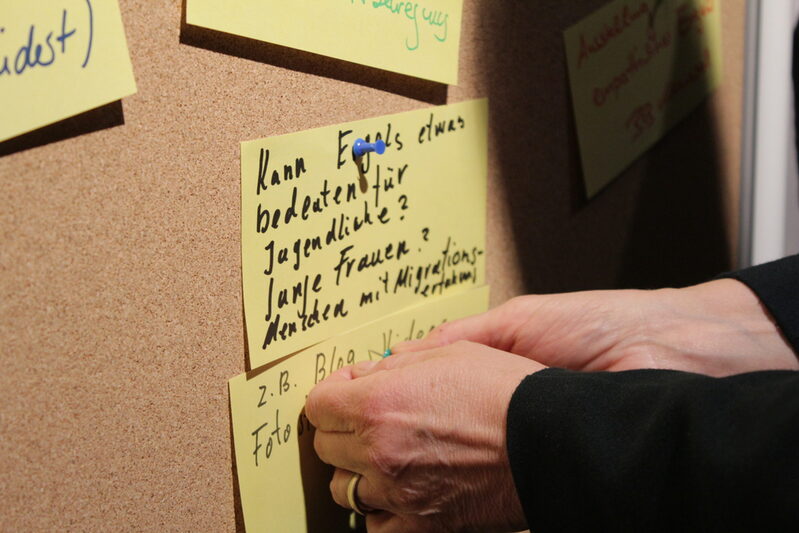 idest)
Kann Engels etwas
bedeuten für
Jugendliche?
Junge Frauen?
Menschen mit Migrations-
erfahrung
z.B. Blog Video
Foto
Ausstellung